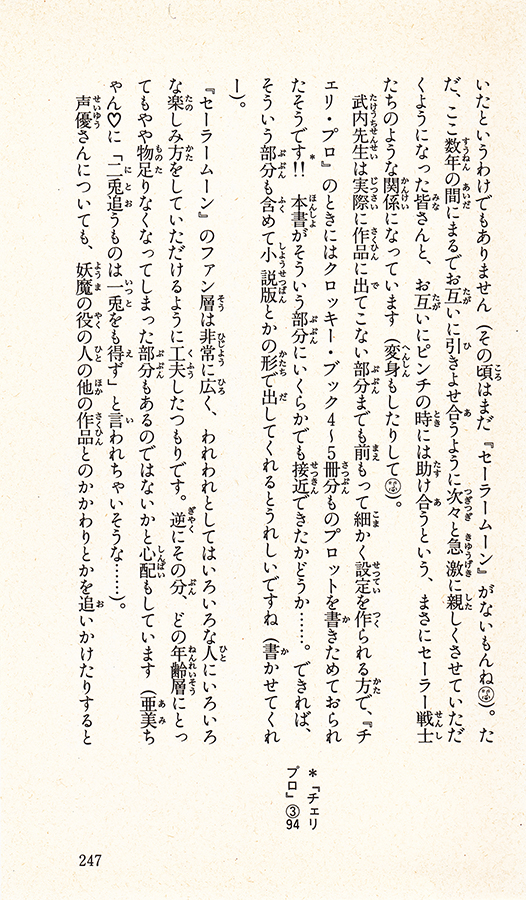 いたというわけでもありません（その頃はまだ『セーラームーン』がないもんね）。た
だ、ここ数年の間にまるでお互いに引きよせ合うように次々と急激に親しくさせていただ
くようになった皆さんと、お互いにピンチの時には助け合うという、まさにセーラー戦士
たちのような関係になっています（変身もしたりして）。
武内先生は実際に作品に出てこない部分までも前もって細かく設定を作られる方で、『チ
ェリ・プロ』のときにはクロッキー・ブック4〜5冊分ものプロットを書きためておられ
たそうです!!＊本書がそういう部分にいくらかでも接近できたかどうか……。できれば、
そういう部分も含めて小説版とかの形で出してくれるとうれしいですね（書かせてくれ
ー）。
『セーラームーン』のファン層は非常に広く、われわれとしてはいろいろな人にいろいろ
な楽しみ方をしていただけるように工夫したつもりです。逆にその分、どの年齢層にとっ
てもやや物足りなくなってしまった部分もあるのではないかと心配もしています（亜美ち
ゃん♡に「二兎追うものは一兎をも得ず」と言われちゃいそうな……）。
声優さんについても、妖魔の役の人の他の作品とのかかわりとかを追いかけたりすると
＊『チェリ
プロ』③94
247